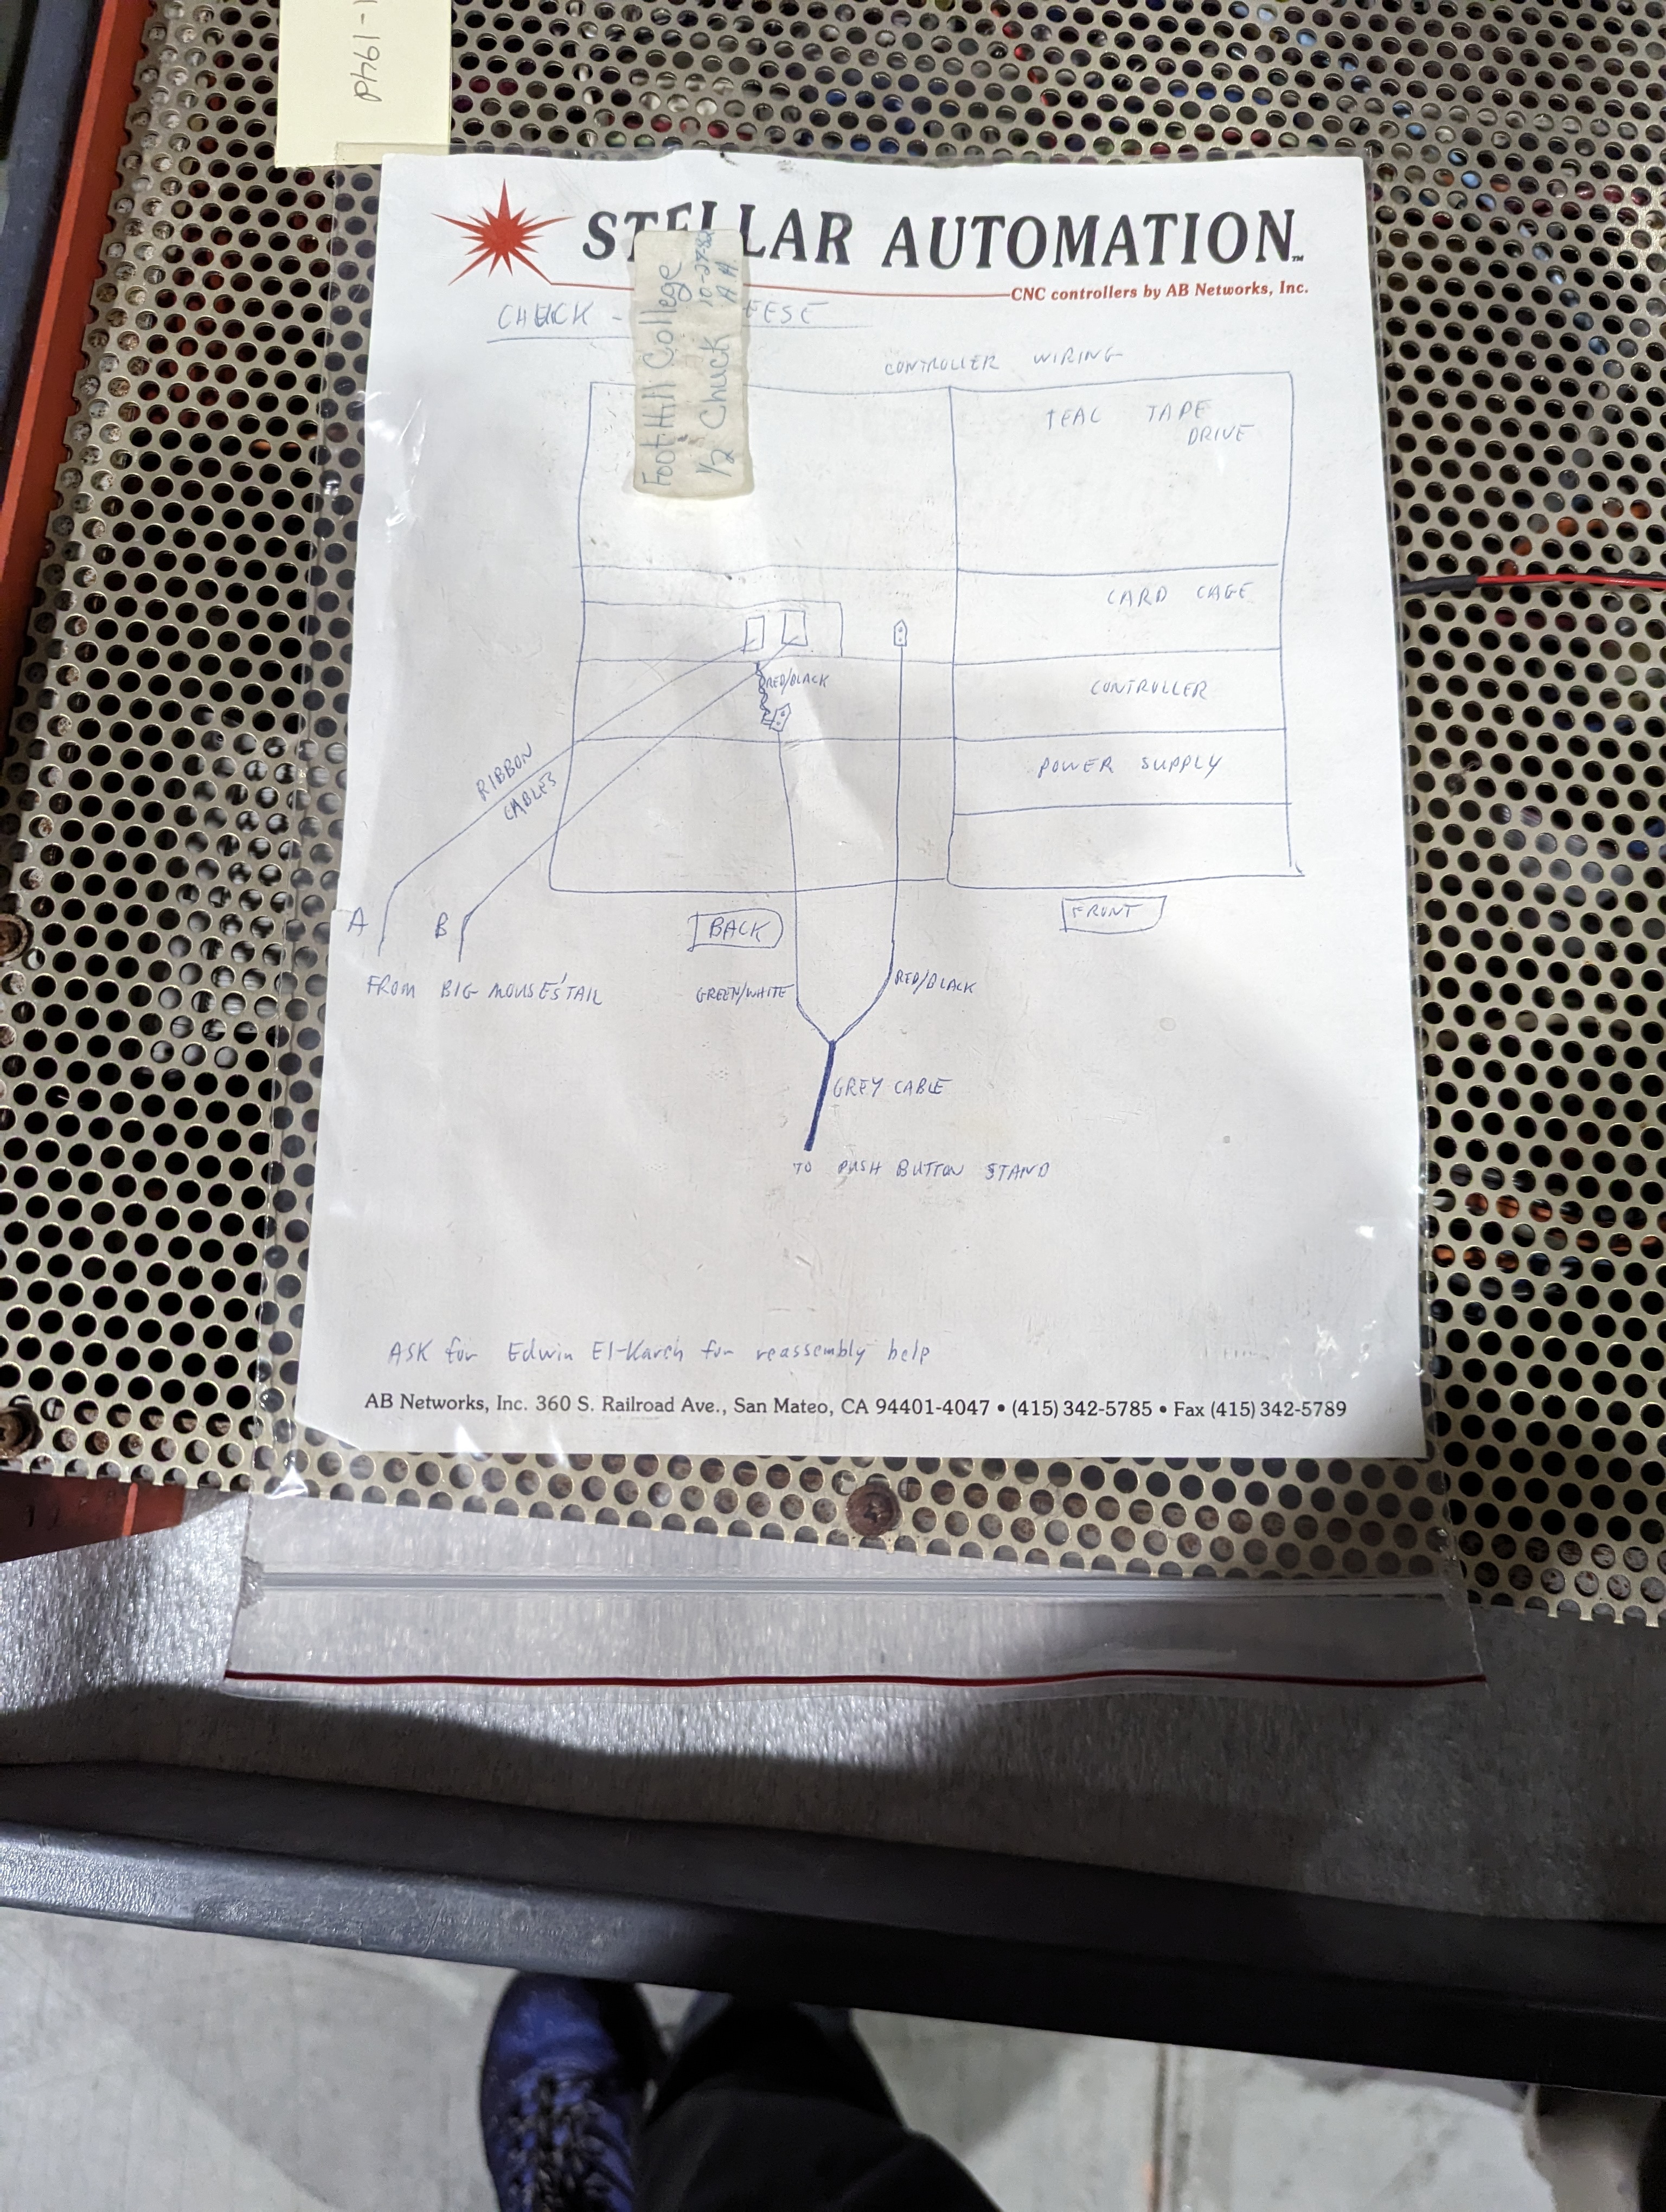 Ph61-1
STELLAR AUTOMATION™
CNC controllers by AB Networks, Inc.
FootHill College
1/2 Chuck
10-27-82
A.H.
CHUCK - EESE
CONTROLLER WIRING
TEAC TAPE
DRIVE
CARD CAGE
RED/BLACK
CONTROLLER
POWER SUPPLY
RIBBON
CABLES
A
B
BACK
FRONT
FROM BIG MOUSES' TAIL
GREEN/WHITE
RED/BLACK
GREY CABLE
TO PUSH BUTTON STAND
ASK for Edwin El-Kareh for reassembly help
AB Networks, Inc. 360 S. Railroad Ave., San Mateo, CA 94401-4047 • (415) 342-5785 • Fax (415) 342-5789